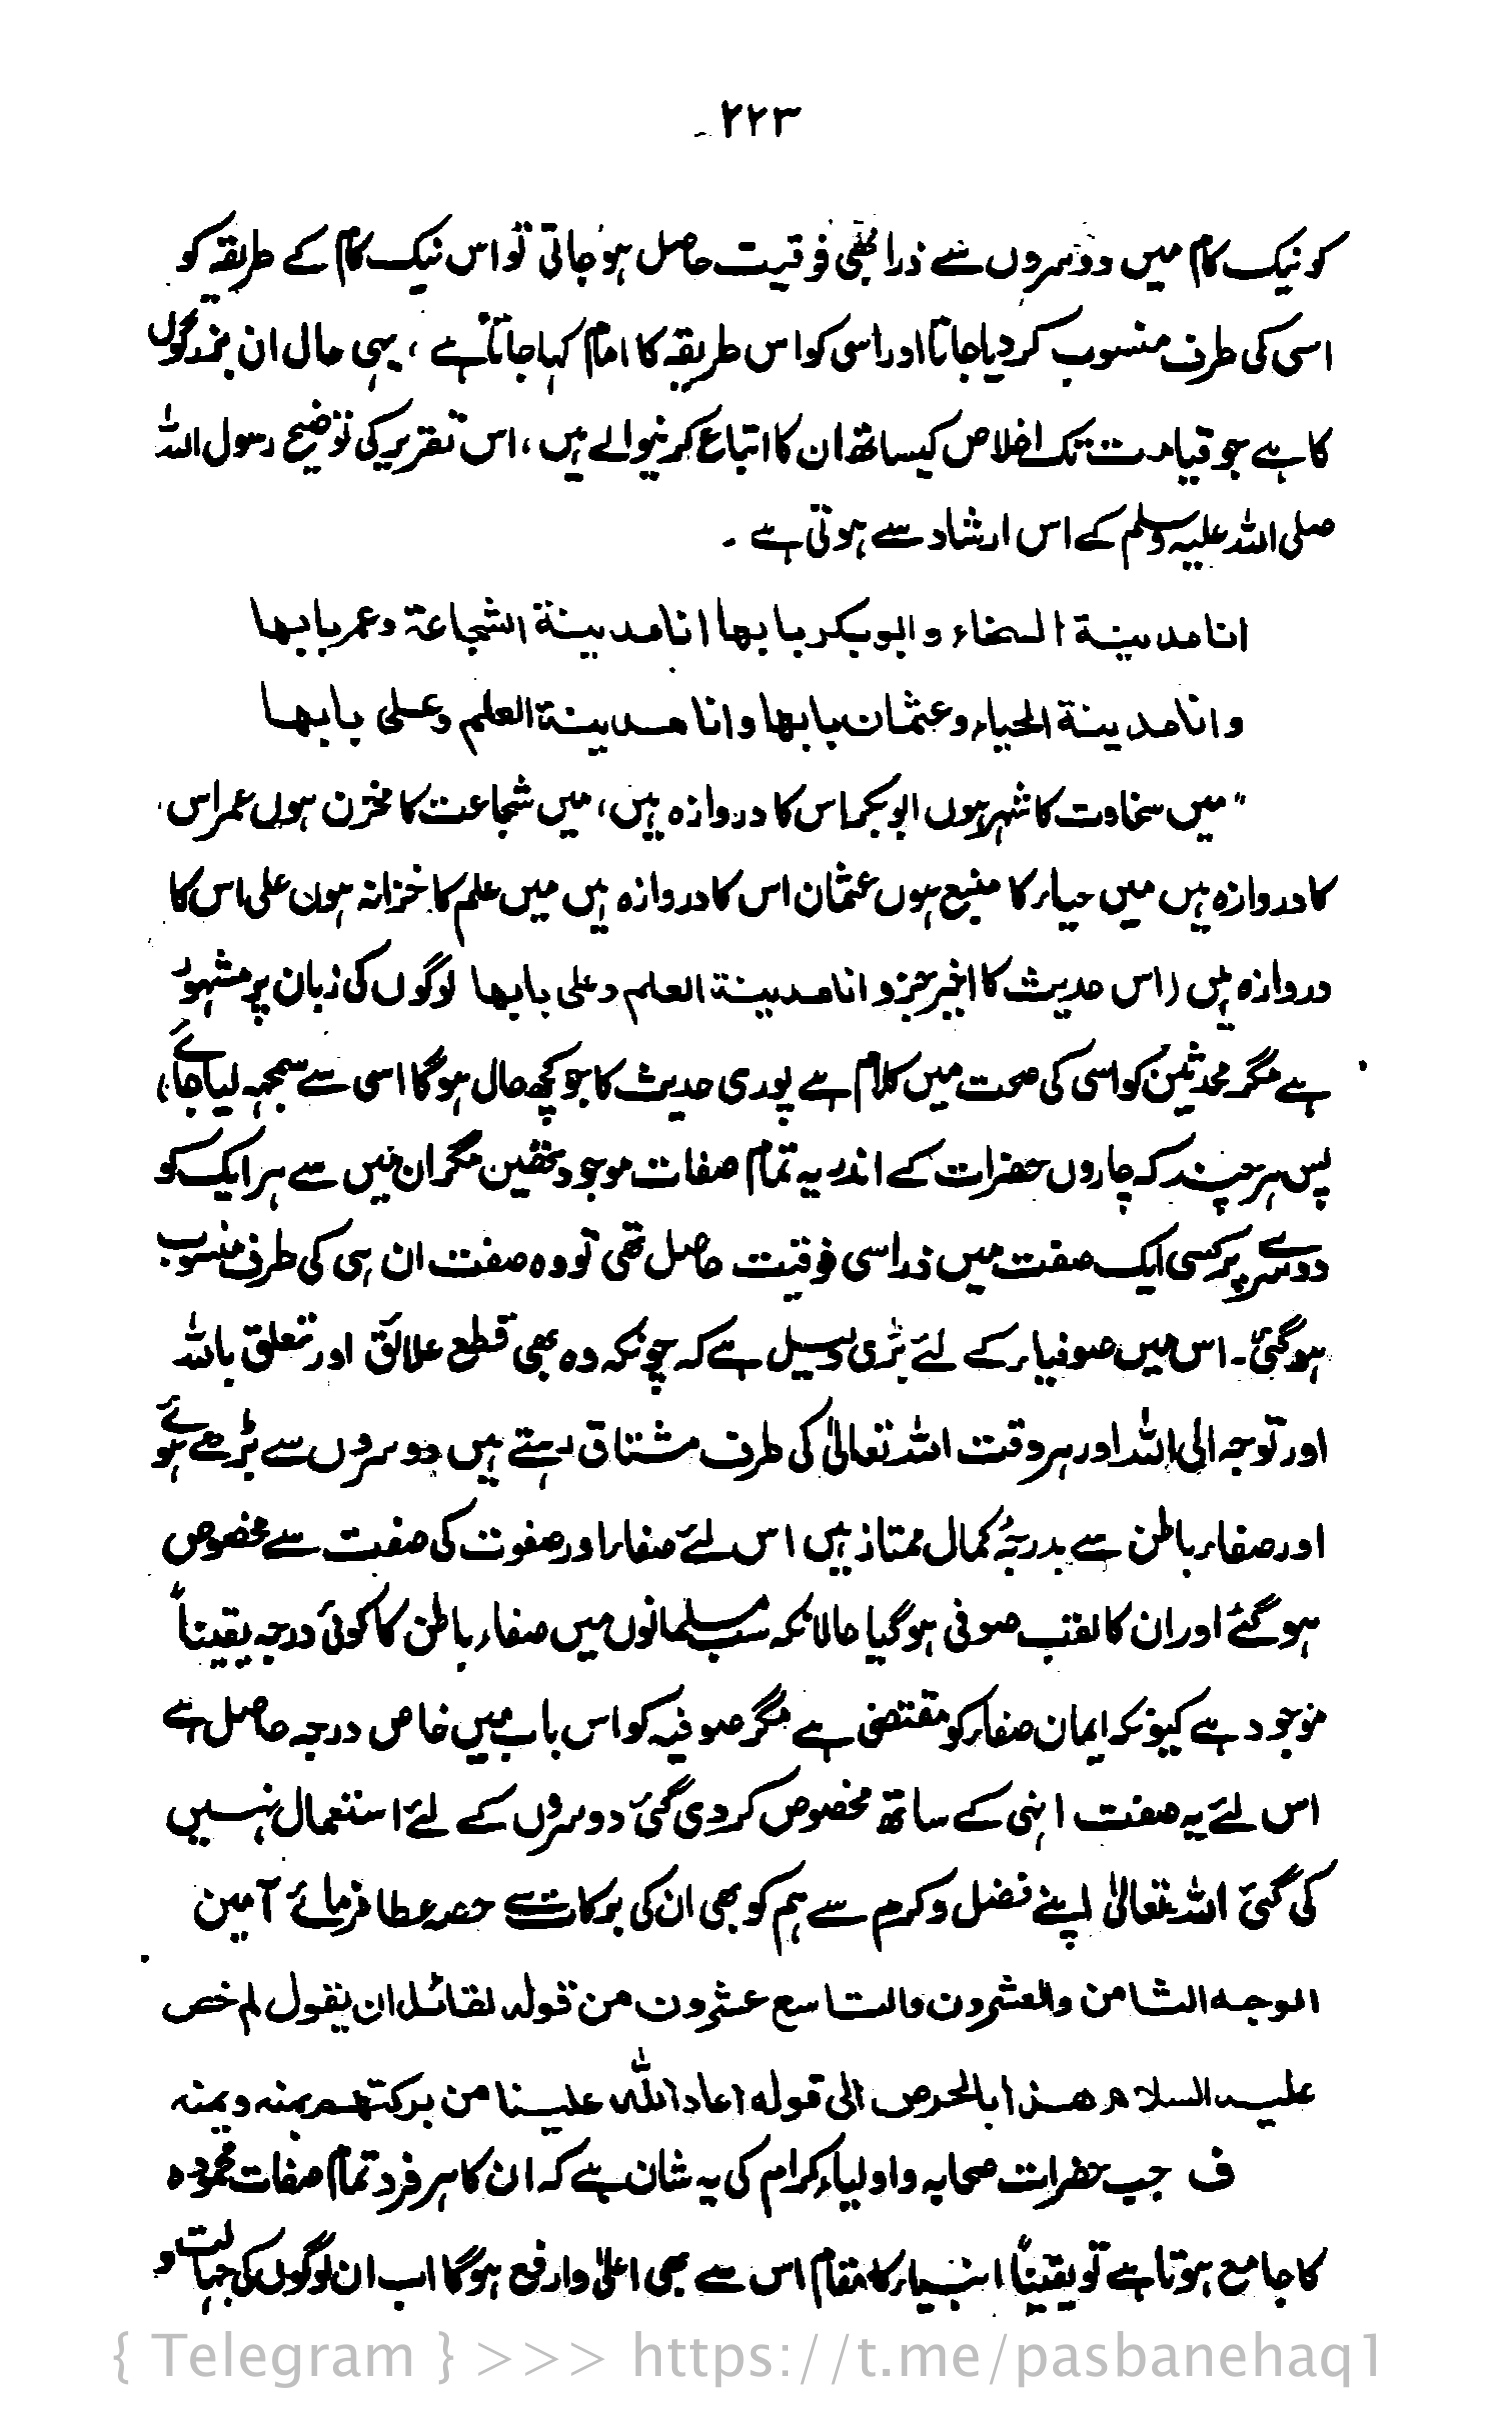 ۲۲۳
کو نیک کام میں دوسروں سے ذرا بھی فوقیت حاصل ہو جاتی تو اس نیک کام کے طریقہ کو
اسی کی طرف منسوب کر دیا جاتا اور اسی کو اس طریقہ کا امام کہا جاتا ہے ، یہی حال ان بزرگوں
کا ہے جو قیامت تک اخلاص کیساتھ ان کا اتباع کرنیوالے ہیں ، اس تقریر کی توضیح رسول اللہ
صلی اللہ علیہ وسلم کے اس ارشاد سے ہوتی ہے ۔
انا مدینة السخاء و ابوبکر بابها انا مدینة الشجاعة و عمر بابها
و انا مدینة الحیاء و عثمان بابها و انا مدینة العلم و علی بابها
" میں سخاوت کا شہر ہوں ابو بکر اس کا دروازہ ہیں ، میں شجاعت کا مخزن ہوں عمر اس
کا دروازہ ہیں میں حیاء کا منبع ہوں عثمان اس کا دروازہ ہیں میں علم کا خزانہ ہوں علی اس کا
دروازہ ہیں (اس حدیث کا اخیر جزو انا مدینة العلم و علی بابها لوگوں کی زبان پر مشہور
ہے مگر محدثین کو اسی کی صحت میں کلام ہے پوری حدیث کا جو کچھ حال ہوگا اسی سے سمجھ لیا جائے)
پس ہر چند کہ چاروں حضرات کے اندر یہ تمام صفات موجود تھیں مگر ان میں سے ہر ایک کو
دوسرے پر کسی ایک صفت میں ذرا سی فوقیت حاصل تھی تو وہ صفت ان ہی کی طرف منسوب
ہو گئی ۔ اس میں صوفیاء کے لئے بڑی دلیل ہے کہ چونکہ وہ بھی قطع علائق اور تعلق باللہ
اور توجہ الی اللہ اور ہر وقت اللہ تعالیٰ کی طرف مشتاق رہتے ہیں دوسروں سے بڑھے ہوئے
اور صفاء باطن سے بدرجۂ کمال ممتاز ہیں اس لئے صفاء اور صفوت کی صفت سے مخصوص
ہو گئے اور ان کا لقب صوفی ہو گیا حالانکہ سب مسلمانوں میں صفاء باطن کا کوئی درجہ یقیناً
موجود ہے کیونکہ ایمان صفاء کو مقتضی ہے مگر صوفیہ کو اس باب میں خاص درجہ حاصل ہے
اس لئے یہ صفت انہی کے ساتھ مخصوص کر دی گئی دوسروں کے لئے استعمال نہیں
کی گئی اللہ تعالیٰ اپنے فضل و کرم سے ہم کو بھی ان کی برکات سے حصہ عطا فرمائے آمین
الوجہ الثامن والعشرون والتاسع عشرون من قولہ لقائل ان یقول لم خص
علیہ السلام هذا بالحرص الی قولہ اعاد اللہ علینا من برکتهم بمنہ و یمنہ
ف جب حضرات صحابہ و اولیاء کرام کی یہ شان ہے کہ ان کا ہر فرد تمام صفات محمودہ
کا جامع ہوتا ہے تو یقیناً انبیاء کا مقام اس سے بھی اعلیٰ وارفع ہوگا اب ان لوگوں کی جہالت و
{ Telegram } >>> https://t.me/pasbanehaq1